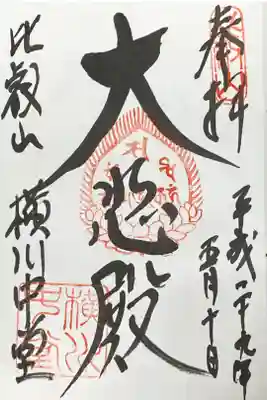 奉拝
平成二十九年
五月十日
大悲殿
比叡山 横川中堂